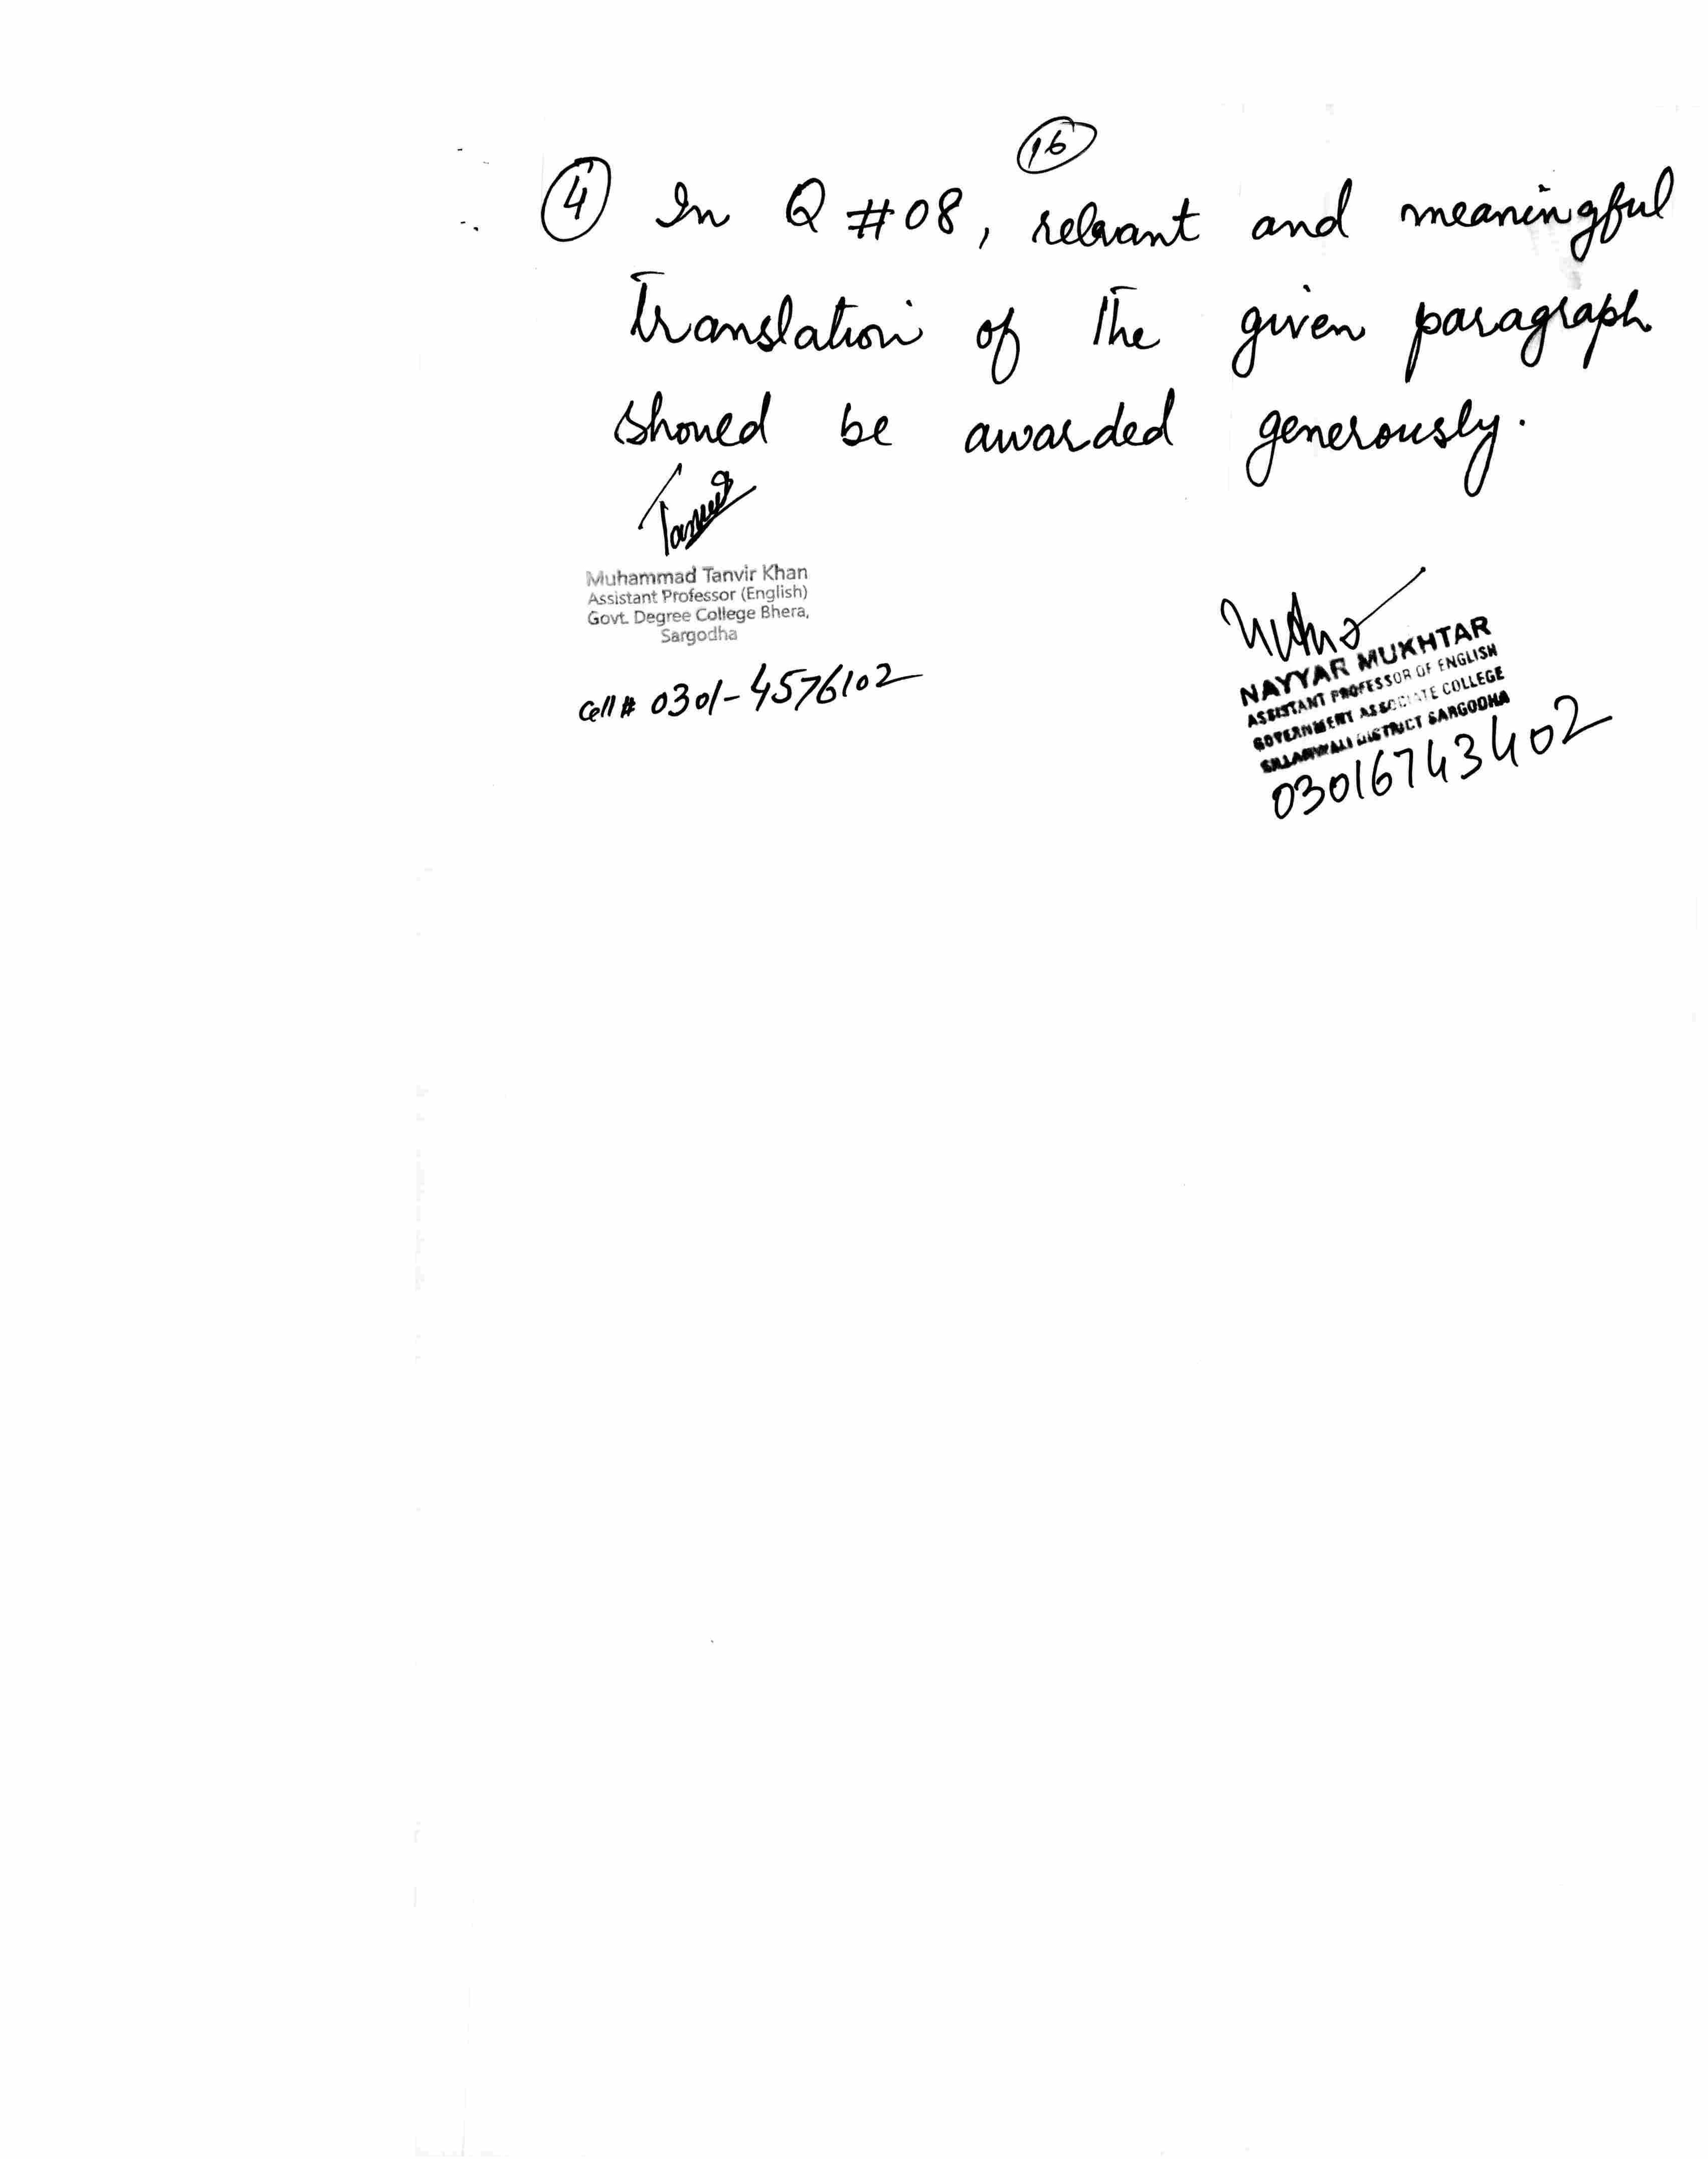 16
4 In Q #08, relevant and meaningful
translation of the given paragraph
should be awarded generously.
Muhammad Tanvir Khan
Assistant Professor (English)
Govt. Degree College Bhera,
Sargodha
Cell # 0301-4576102
NAYYAR MUKHTAR
ASSISTANT PROFESSOR OF ENGLISH
GOVERNMENT ASSOCIATE COLLEGE
SILLANWALI DISTRICT SARGODHA
03016743402